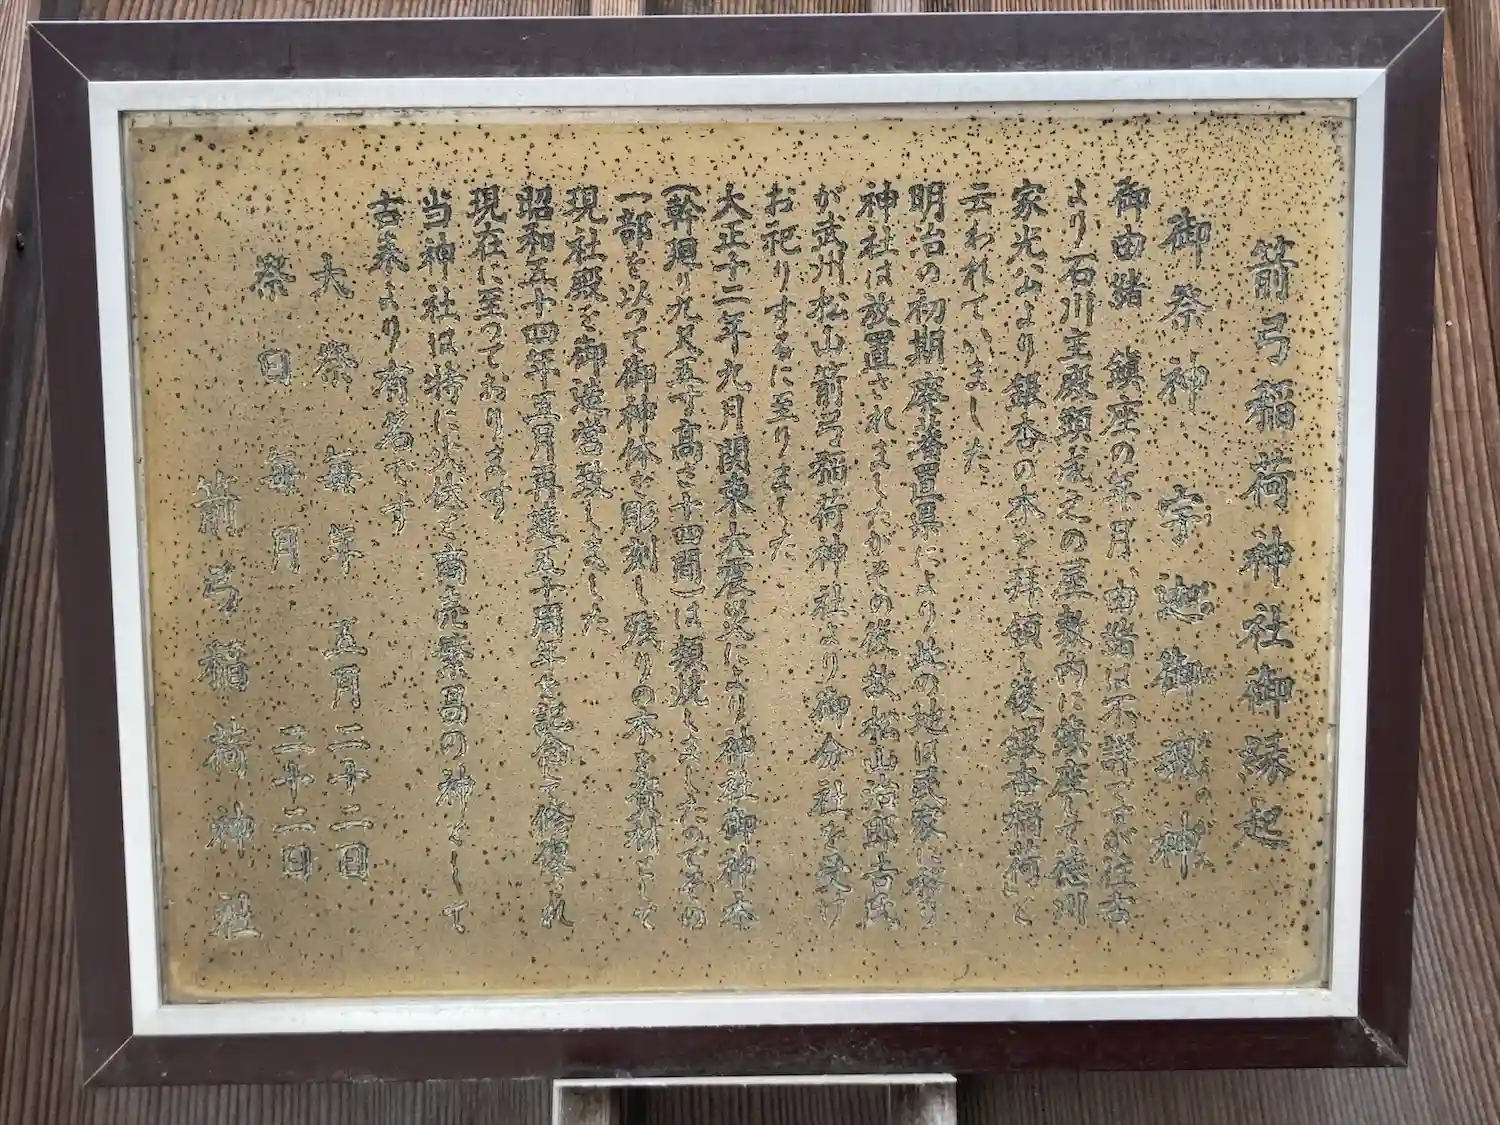 箭弓稲荷神社御縁起
御祭神 宇迦御魂神
御由緒 鎮座の年月、由緒は不詳ですが往古
より石川主殿頭成之の屋敷内に鎮座して徳川
家光公より銀杏の木を拝領し後「銀杏稲荷」と
云われていました
明治の初期廃藩置県により此の地は武家に移り
神社は放置されましたがその後故松山治郎吉氏
が武州松山箭弓稲荷神社より御分社を受け
お祀りするに至りました
大正十二年九月関東大震災により神社御神木
(幹廻り九尺五寸高さ十四間)は類焼しましたのでその
一部を以って御神体を彫刻し残りの木を資材として
現社殿を御造営致しました
昭和五十四年五月再建五十周年を記念して修復され
現在に至っております
当神社は特に火伏と商売繁昌の神として
古来より有名です
大祭 毎年 五月二十二日
祭日 毎月 二十二日
箭弓稲荷神社